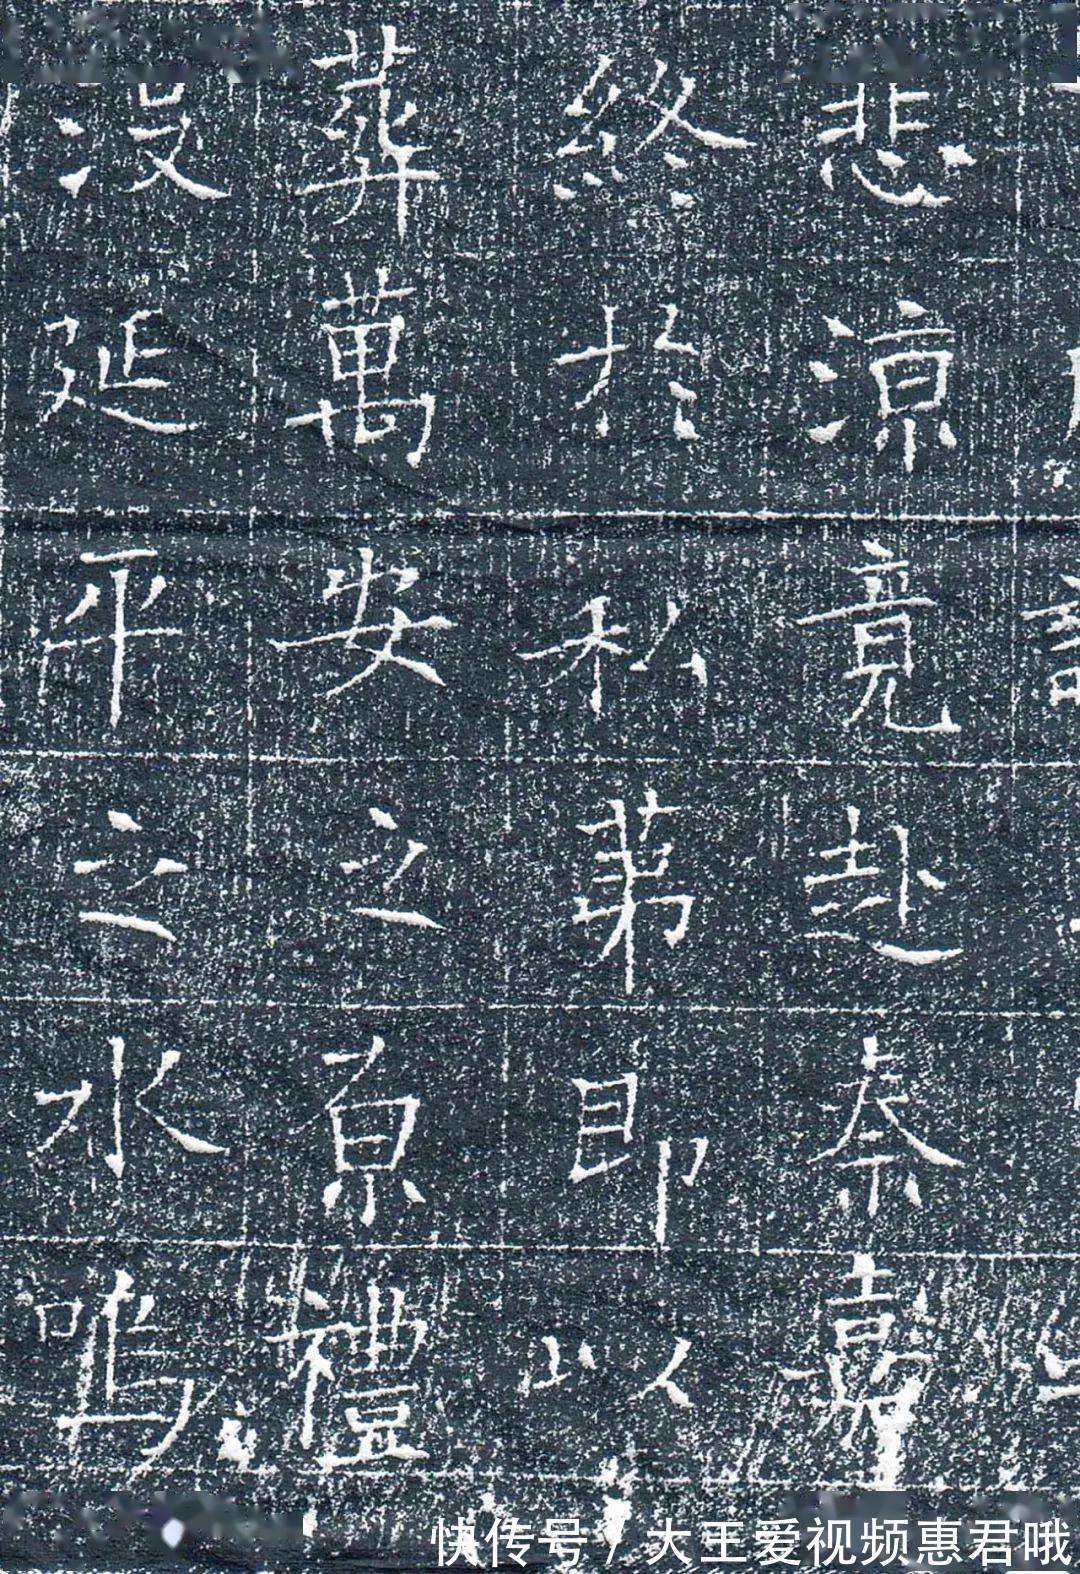 悲涼竟赴秦嘉
終於私苐即以
葬萬安之原禮
没延平之水嗚
快传号 / 大王爱视频惠君哦